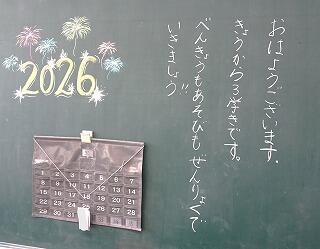 おはようございます。
きょうから3学きです。
べんきょうもあそびも ぜんりょくで
いきましょう!!
2026
1 2 3 4 5 6 7
8 9 10 11 12 13 14
15 16 17 18 19 20 21
22 23 24 25 26 27 28
29 30 31